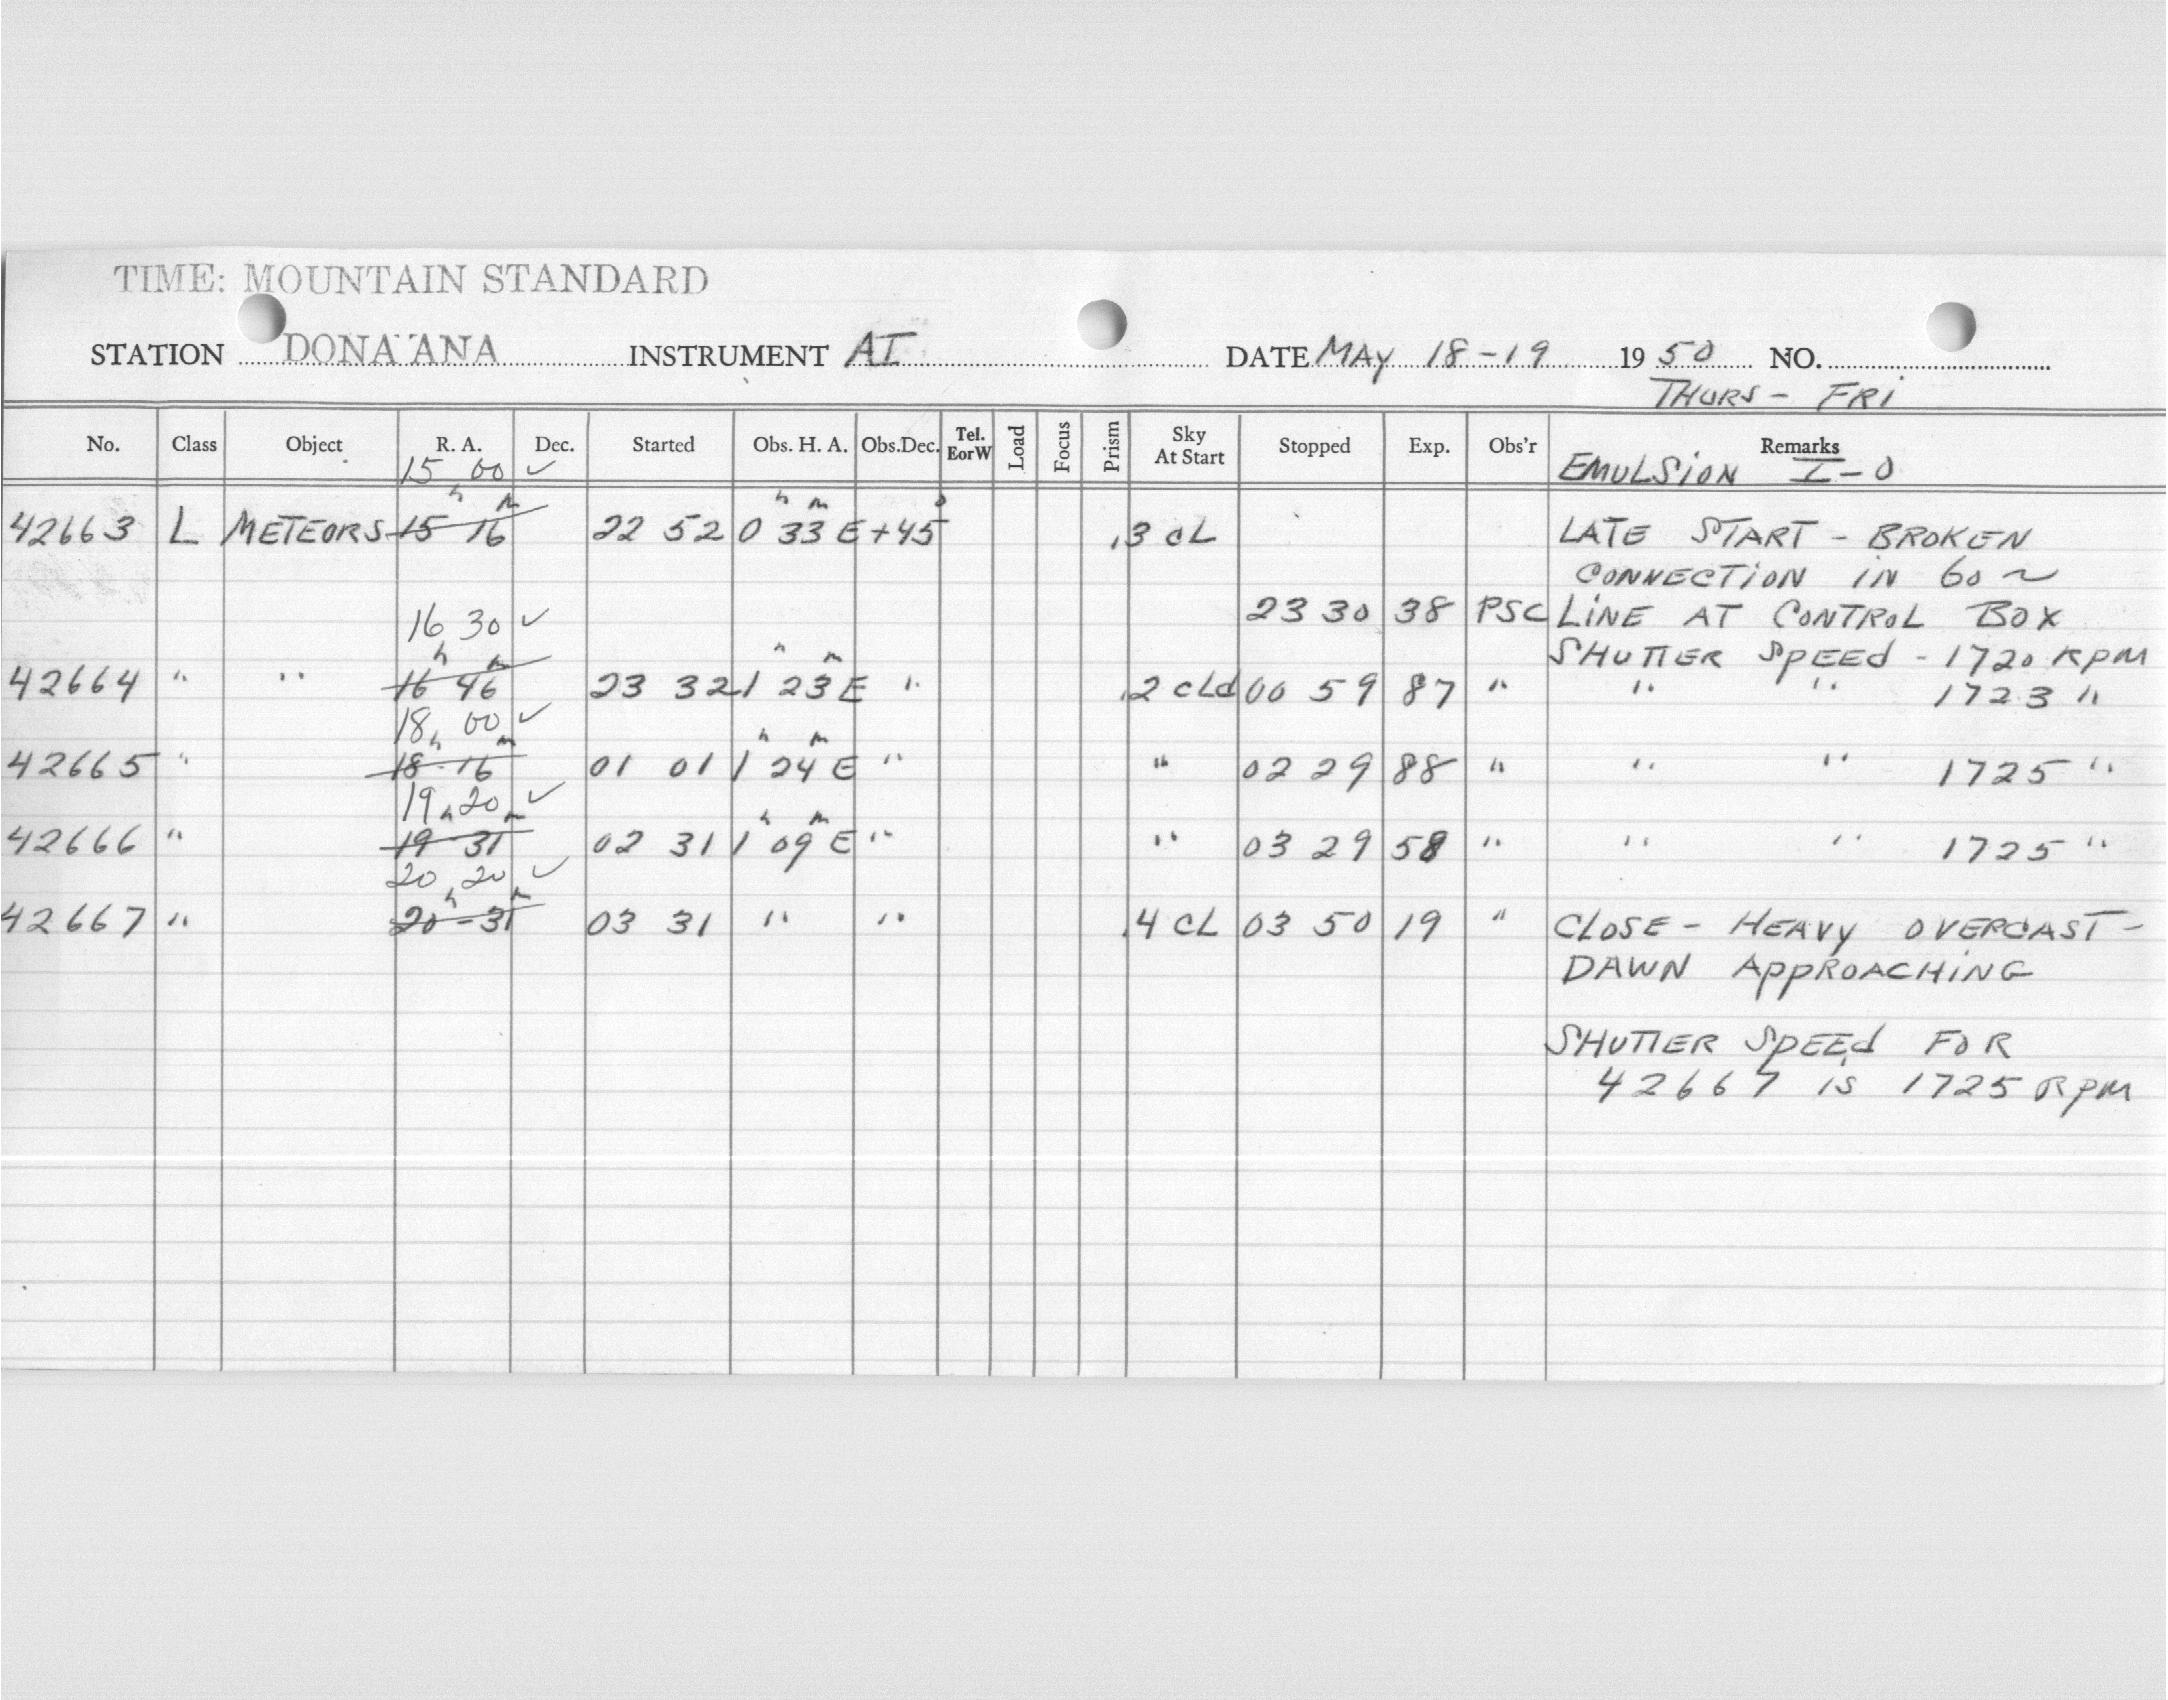 TIME: MOUNTAIN STANDARD
STATION DONA ANA INSTRUMENT AI DATE MAY 18-19 1950 NO.
THURS - FRI
No. Class Object R. A. Dec. Started Obs. H. A. Obs.Dec. Tel. EorW Load Focus Prism Sky At Start Stopped Exp. Obs'r Remarks
15 00 ✓ EMULSION I-O
42663 L METEORS 15h 16m 22 52 0h 33m E +45° .3 CL LATE START - BROKEN
CONNECTION IN 60 ~
16 30 ✓ 23 30 38 PSC LINE AT CONTROL BOX
SHUTTER SPEED - 1720 RPM
42664 " " 16h 46m 23 32 1h 23m E " .2 CLd 00 59 87 " " " 1723 "
18 00 ✓
42665 " 18h 16m 01 01 1h 24m E " " 02 29 88 " " " 1725 "
19 20 ✓
42666 " 19h 31m 02 31 1h 09m E " " 03 29 58 " " " 1725 "
20 20 ✓
42667 " 20h - 31m 03 31 " " .4 CL 03 50 19 " CLOSE - HEAVY OVERCAST -
DAWN APPROACHING
SHUTTER SPEED FOR
42667 IS 1725 RPM